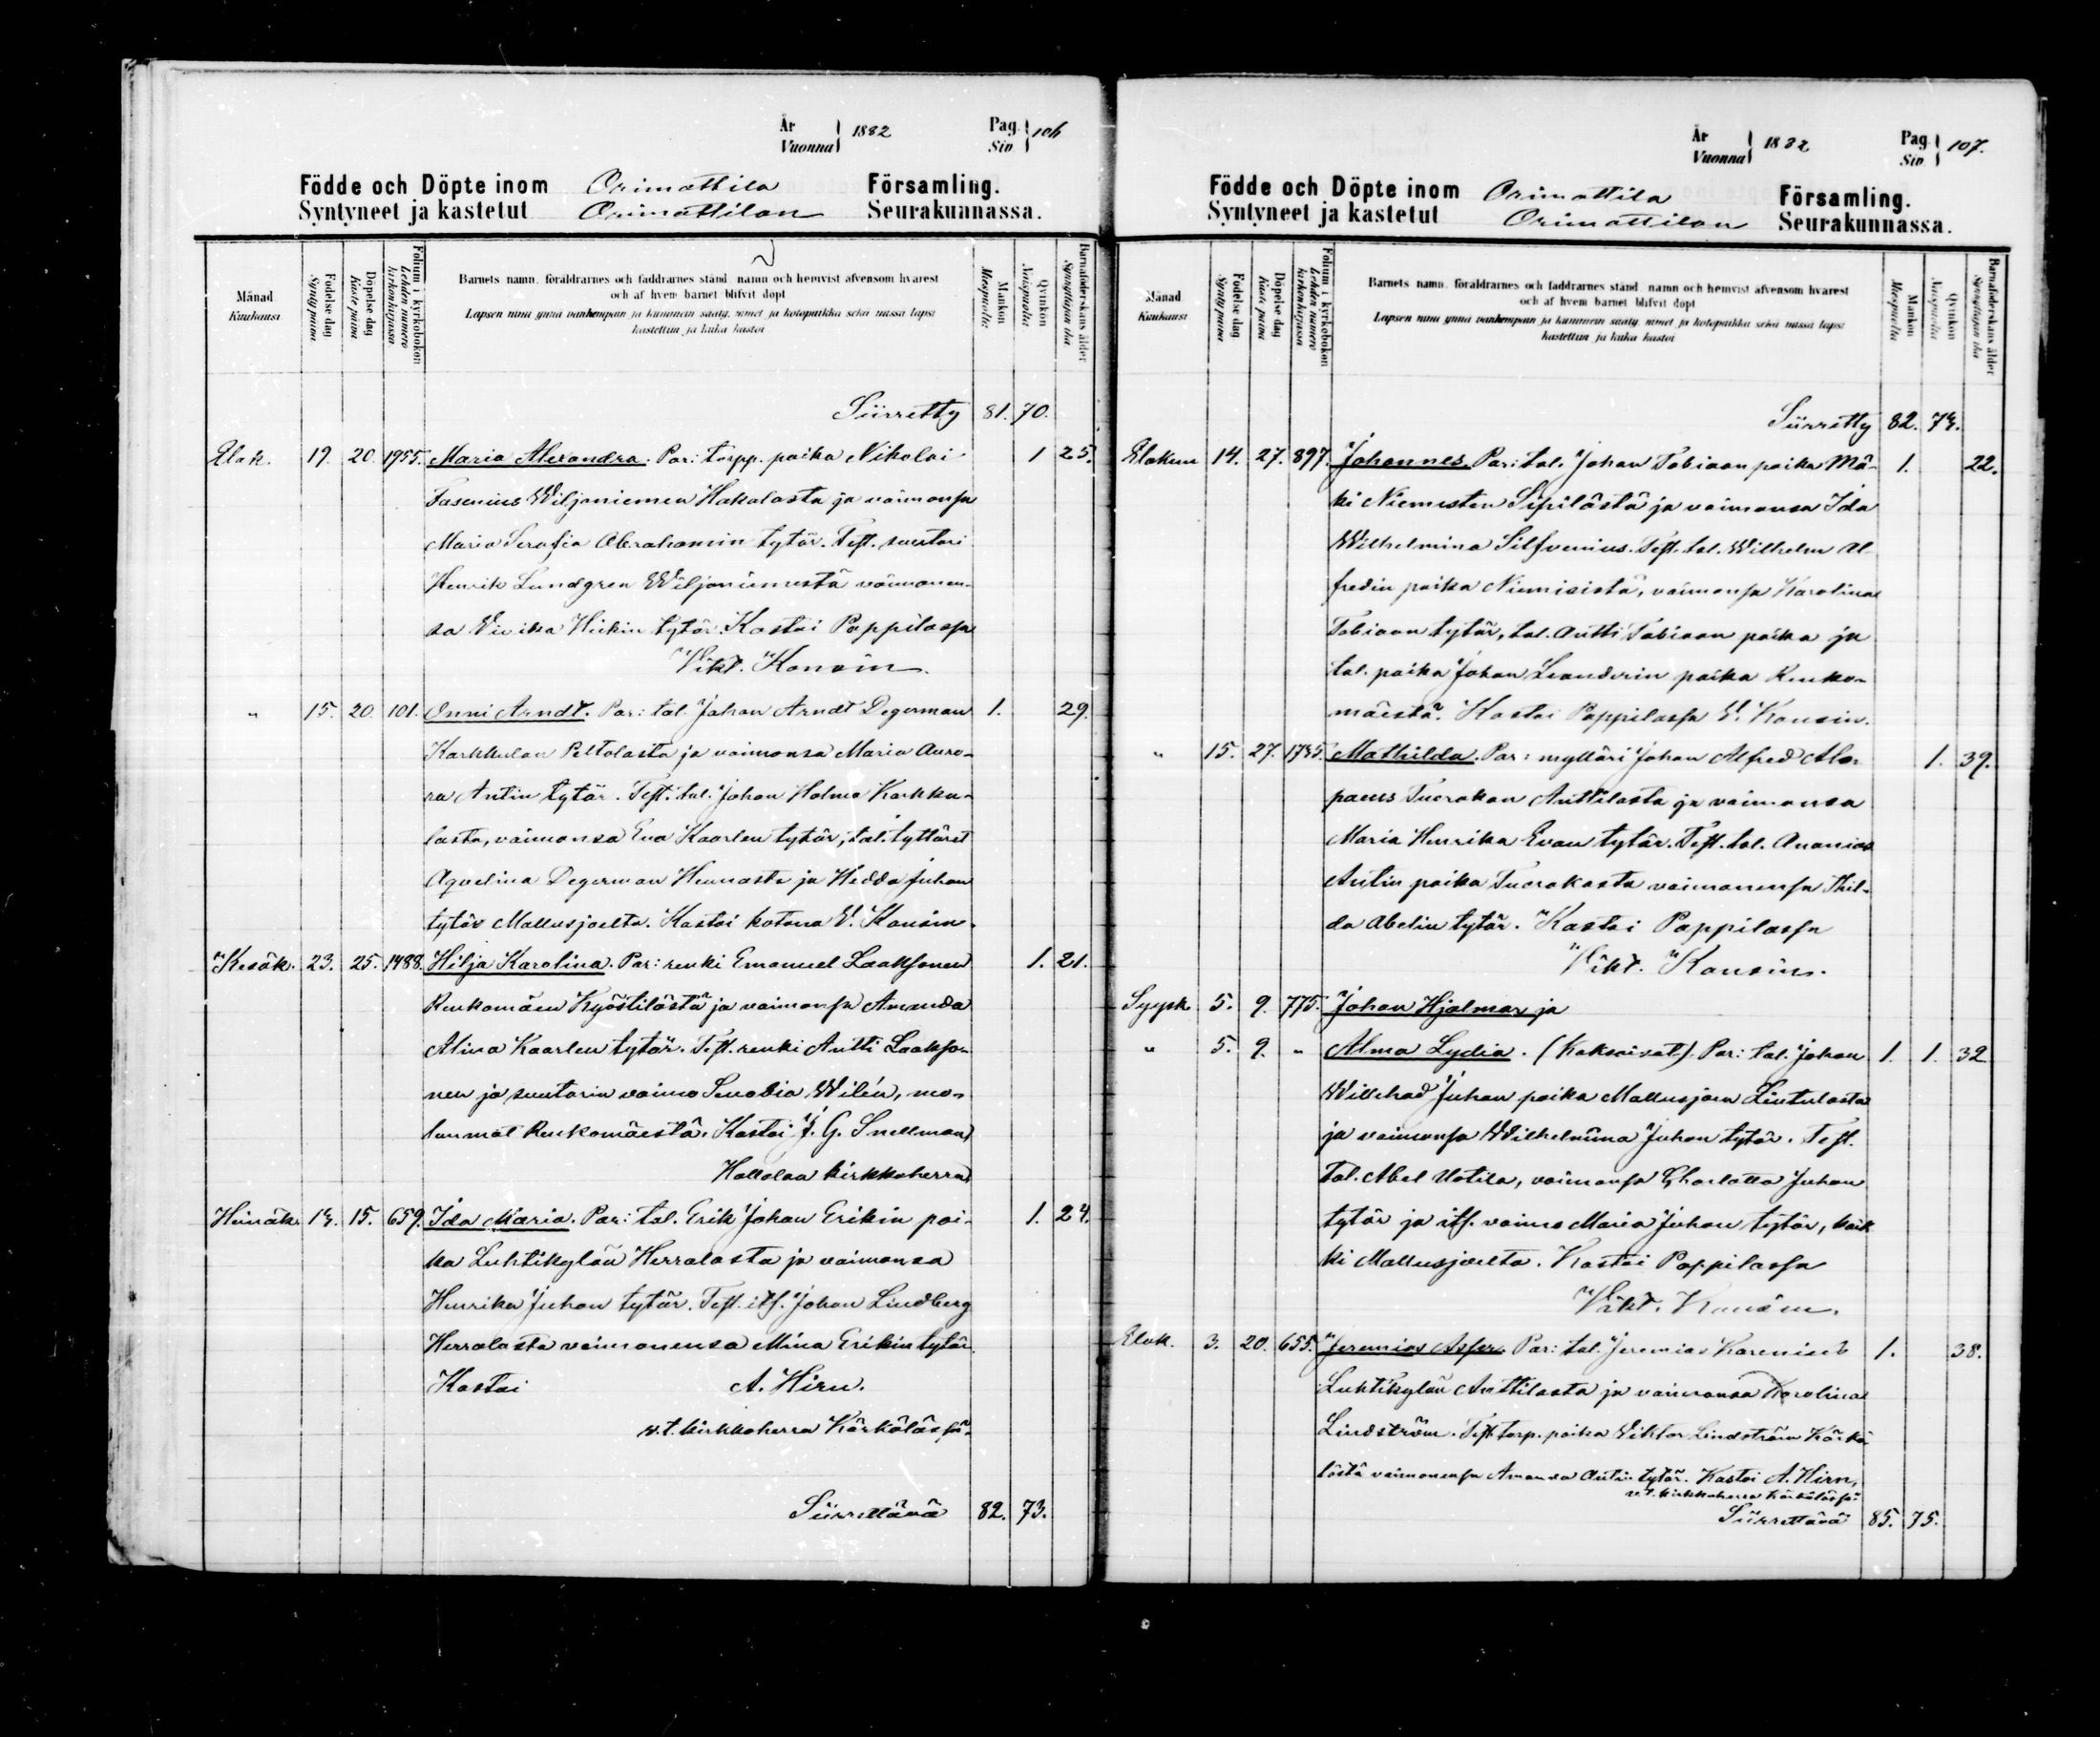 År
Vuonna 1882
Pag.
Siv. 106
Födde och Döpte inom Orimattila Församling.
Syntyneet ja kastetut Orimattilan Seurakunnassa.
Månad
Kuukausi
Födelse dag
Synty päivä
Döpelse dag
Kaste päivä
Folium i kyrkoboken
Lehden numero kirkonkirjassa
Barnets namn, föräldrarnes och faddrarnes stånd, namn och hemvist äfvensom hvarest
och af hvem barnet blifvit döpt
Lapsen nimi ynnä vanhempain ja kummein sääty, nimet ja kotopaikka sekä missä lapsi
kastettiin ja kuka kastoi
Mankön
Miespuolia
Qvinkön
Naispuolia
Barnaföderskans ålder
Synnyttäjän ikä
Siirretty 81. 70.
Elok. 19. 20. 1955. Maria Alexandra. Par: torpp. poika Nikolai 1 25.
Fasenius Wiljaniemen Hakalasta ja vaimonsa
Maria Serafia Abrahamin tytär. Test. suutari
Henrik Lundgren Wiljaniemestä vaimonen-
sa Viivika Heikin tytär. Kastoi Pappilassa
Vikt. Konsin.
" 15. 20. 101. Onni Arndt. Par: tal. Johan Arndt Degerman 1. 29.
Karkkulan Peltolasta ja vaimonsa Maria Auro-
ra Antin tytär. Test. tal. Johan Holma Karkku-
lasta, vaimonsa Eva Kaarlen tytär, tal. tyttäret
Aqvelina Degerman Hennasta ja Hedda Juhan
tytär Mallusjoelta. Kastoi kotona V. Konsin.
Kesäk. 23. 25. 1488. Hilja Karolina. Par: renki Emanuel Laaksonen 1. 21.
Renkomäen Kyöstilästä ja vaimonsa Amanda
Alina Kaarlen tytär. Test. renki Antti Laakso-
nen ja suutarin vaimo Senobia Wilén, mo-
lemmat Renkomäestä. Kastoi J. G. Snellman,
Hollolan kirkkoherra
Heinäk. 14. 15. 659. Ida Maria. Par: tal. Erik Johan Erikin poi- 1. 24.
ka Luhtikylän Herralasta ja vaimonsa
Henrika Juhan tytär. Test. its. Johan Lindberg
Herralasta vaimonensa Mina Erikin tytär.
Kastoi A. Hirn.
v.t. kirkkoherra Kärkölässä.
Siirrettävä 82. 73.
År
Vuonna 1882
Pag.
Siv. 107.
Födde och Döpte inom Orimattila Församling.
Syntyneet ja kastetut Orimattilan Seurakunnassa.
Månad
Kuukausi
Födelse dag
Synty päivä
Döpelse dag
Kaste päivä
Folium i kyrkoboken
Lehden numero kirkonkirjassa
Barnets namn, föräldrarnes och faddrarnes stånd, namn och hemvist äfvensom hvarest
och af hvem barnet blifvit döpt
Lapsen nimi ynnä vanhempain ja kummein sääty, nimet ja kotopaikka sekä missä lapsi
kastettiin ja kuka kastoi
Mankön
Miespuolia
Qvinkön
Naispuolia
Barnaföderskans ålder
Synnyttäjän ikä
Siirretty 82. 73.
Elokuu 14. 27. 897. Johannes. Par: tal. Johan Tobiaan poika Mä- 1. 22.
ki Niemisten Sipilästä ja vaimonsa Ida
Wilhelmina Silfvenius. Test. tal. Wilhelm Al-
fredin poika Niemisistä, vaimonsa Karolina
Tobiaan tytär, tal. Antti Tobiaan poika ja
tal. poika Johan Leanderin poika Renko-
mäestä. Kastoi Pappilassa V. Konsin.
" 15. 27. 1735. Mathilda. Par: mylläri Johan Alfred Alo- 1. 39.
paeus Tuorakan Anttilasta ja vaimonsa
Maria Henrika Evan tytär. Test. tal. Ananias
Antin poika Tuorakasta vaimonensa Thil-
da Abelin tytär. Kastoi Pappilassa
Vikt. Konsin.
Syysk. 5. 9. 775. Johan Hjalmar ja
" 5. 9. " Alma Lydia. (Kaksoiset). Par: tal. Johan 1. 1. 32
Willehad Juhan poika Mallusjoen Lintulasta
ja vaimonsa Wilhelmina Juhan tytär. Test.
Tal. Abel Uotila, vaimonsa Charlotta Juhan
tytär ja its. vaimo Maria Juhan tytär, kaik
ki Mallusjoelta. Kastoi Pappilassa
Vikt. Konsin.
Elok. 3. 20. 655. Jeremias Asser. Par: tal. Jeremias 1. 38.
Luhtikylän Anttilasta ja vaimonsa Karolina
Lindström. Test. torp. poika Viktor Lindström Kärkö-
löstä vaimonensa Amanda Antin tytär. Kastoi A. Hirn,
v.t. kirkkoherra Kärkölässä.
Siirrettävä 85. 75.